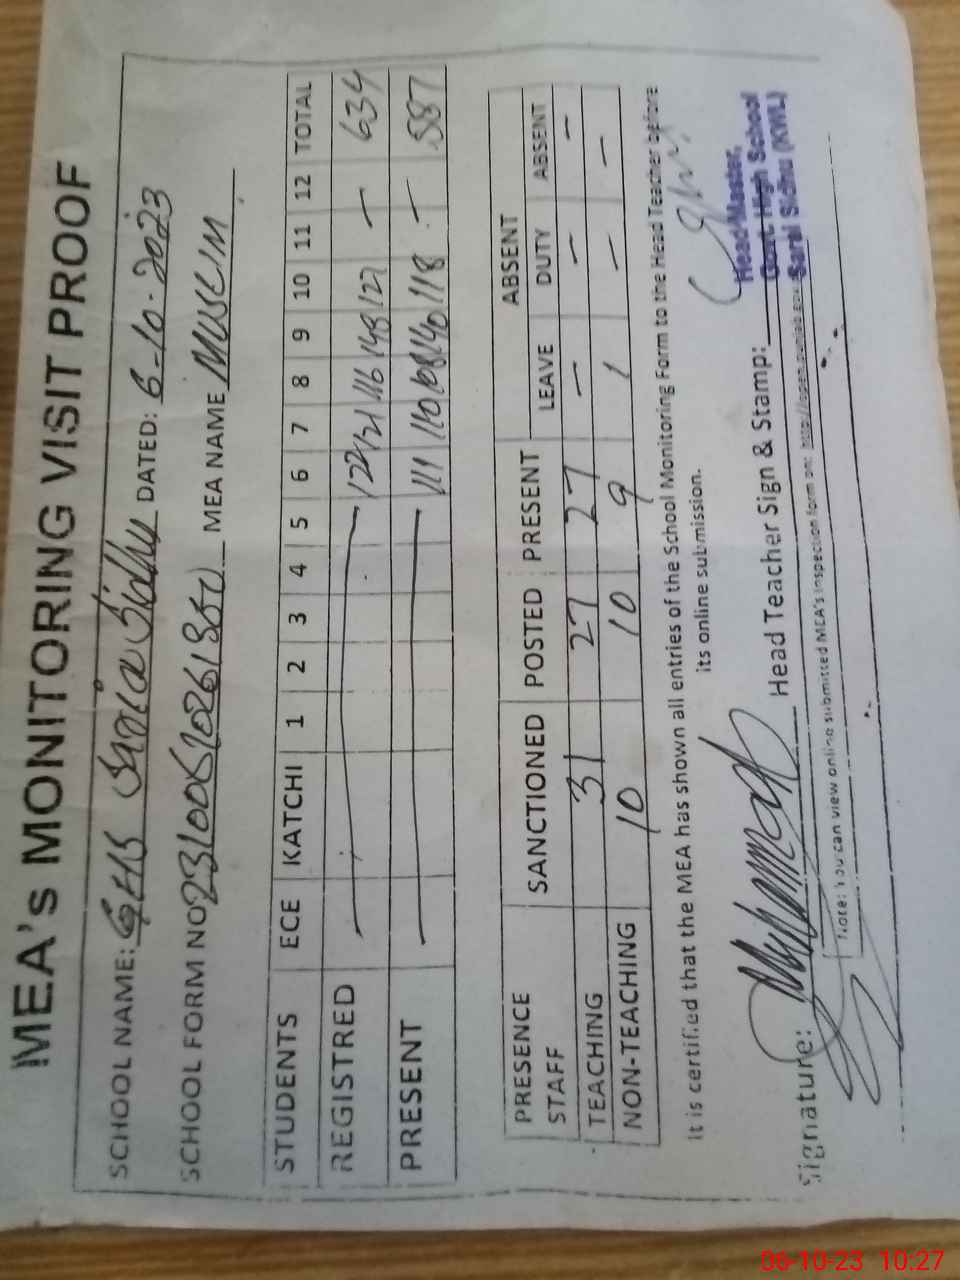 MEA's MONITORING VISIT PROOF
SCHOOL NAME: GHS Sarai Sidhu DATED: 6-10-2023
SCHOOL FORM NO MEA NAME MUSLIM
STUDENTS ECE KATCHI 1 2 3 4 5 6 7 8 9 10 11 12 TOTAL
REGISTRED — 122 121 116 148 127 — 634
PRESENT — 111 110 108 140 118 — 587
PRESENCE STAFF SANCTIONED POSTED PRESENT ABSENT
LEAVE DUTY ABSENT
TEACHING 31 27 27 — — —
NON-TEACHING 10 10 9 1 — —
It is certified that the MEA has shown all entries of the School Monitoring Form to the Head Teacher before
its online submission.
Signature: Head Teacher Sign & Stamp:
Head Master,
Govt. High School
Sarai Sidhu (KWL)
Note: You can view online submitted MEA's inspection form on: http://open.punjab.gov
06-10-23 10:27